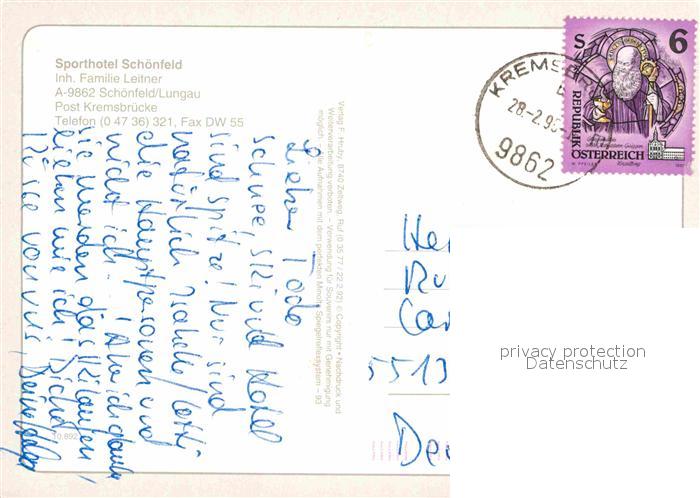 Sporthotel Schönfeld
Inh. Familie Leitner
A-9862 Schönfeld/Lungau
Post Kremsbrücke
Telefon (0 47 36) 321, Fax DW 55
Verlag F. Hruby, 8740 Zeltweg, Ruf (0 35 77 / 22 2 92) • Copyright • Nachdruck und
Verarbeitung verboten. – Verwendung für Souvenirs nur mit Genehmigung
möglich. Aufnahmen mit dem perfekten Minolta Spiegelreflexsystem – 93
Lieber
Schnee, Ski und Hotel
sind spitze! Nur sind
natürlich
die Hauptpersonen und
nicht ich - Aber ich glaube
sie werden das Skilaufen
lieben wie ich!
von uns
KREMSB
28-2.9
9862
S 6
REPUBLIK
ÖSTERREICH
He
Ru
Ca
5513
Deu
privacy protection
Datenschutz